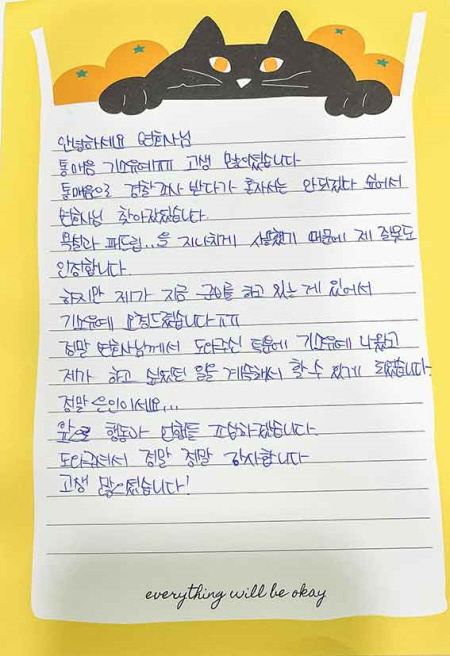 안녕하세요 변호사님
통매음 기소유예ㅠㅠ 고생 많으셨습니다
통매음으로 경찰조사 받다가 혼자서는 안되겠다 싶어서
변호사님 찾아갔었습니다
욕설과 패드립..을 지나치게 사용했기 때문에 제 잘못도
인정합니다.
하지만 제가 지금 하고 있는 게 있어서
기소유예 요청드렸습니다ㅠㅠ
정말 변호사님께서 도와주신 덕분에 기소유예 나왔고
제가 하고 싶었던 일을 계속해서 할 수 있게 되었습니다.
정말 은인이세요...
앞으로 행동과 언행을 조심하겠습니다.
도와주셔서 정말 정말 감사합니다
고생 많으셨습니다!
everything will be okay